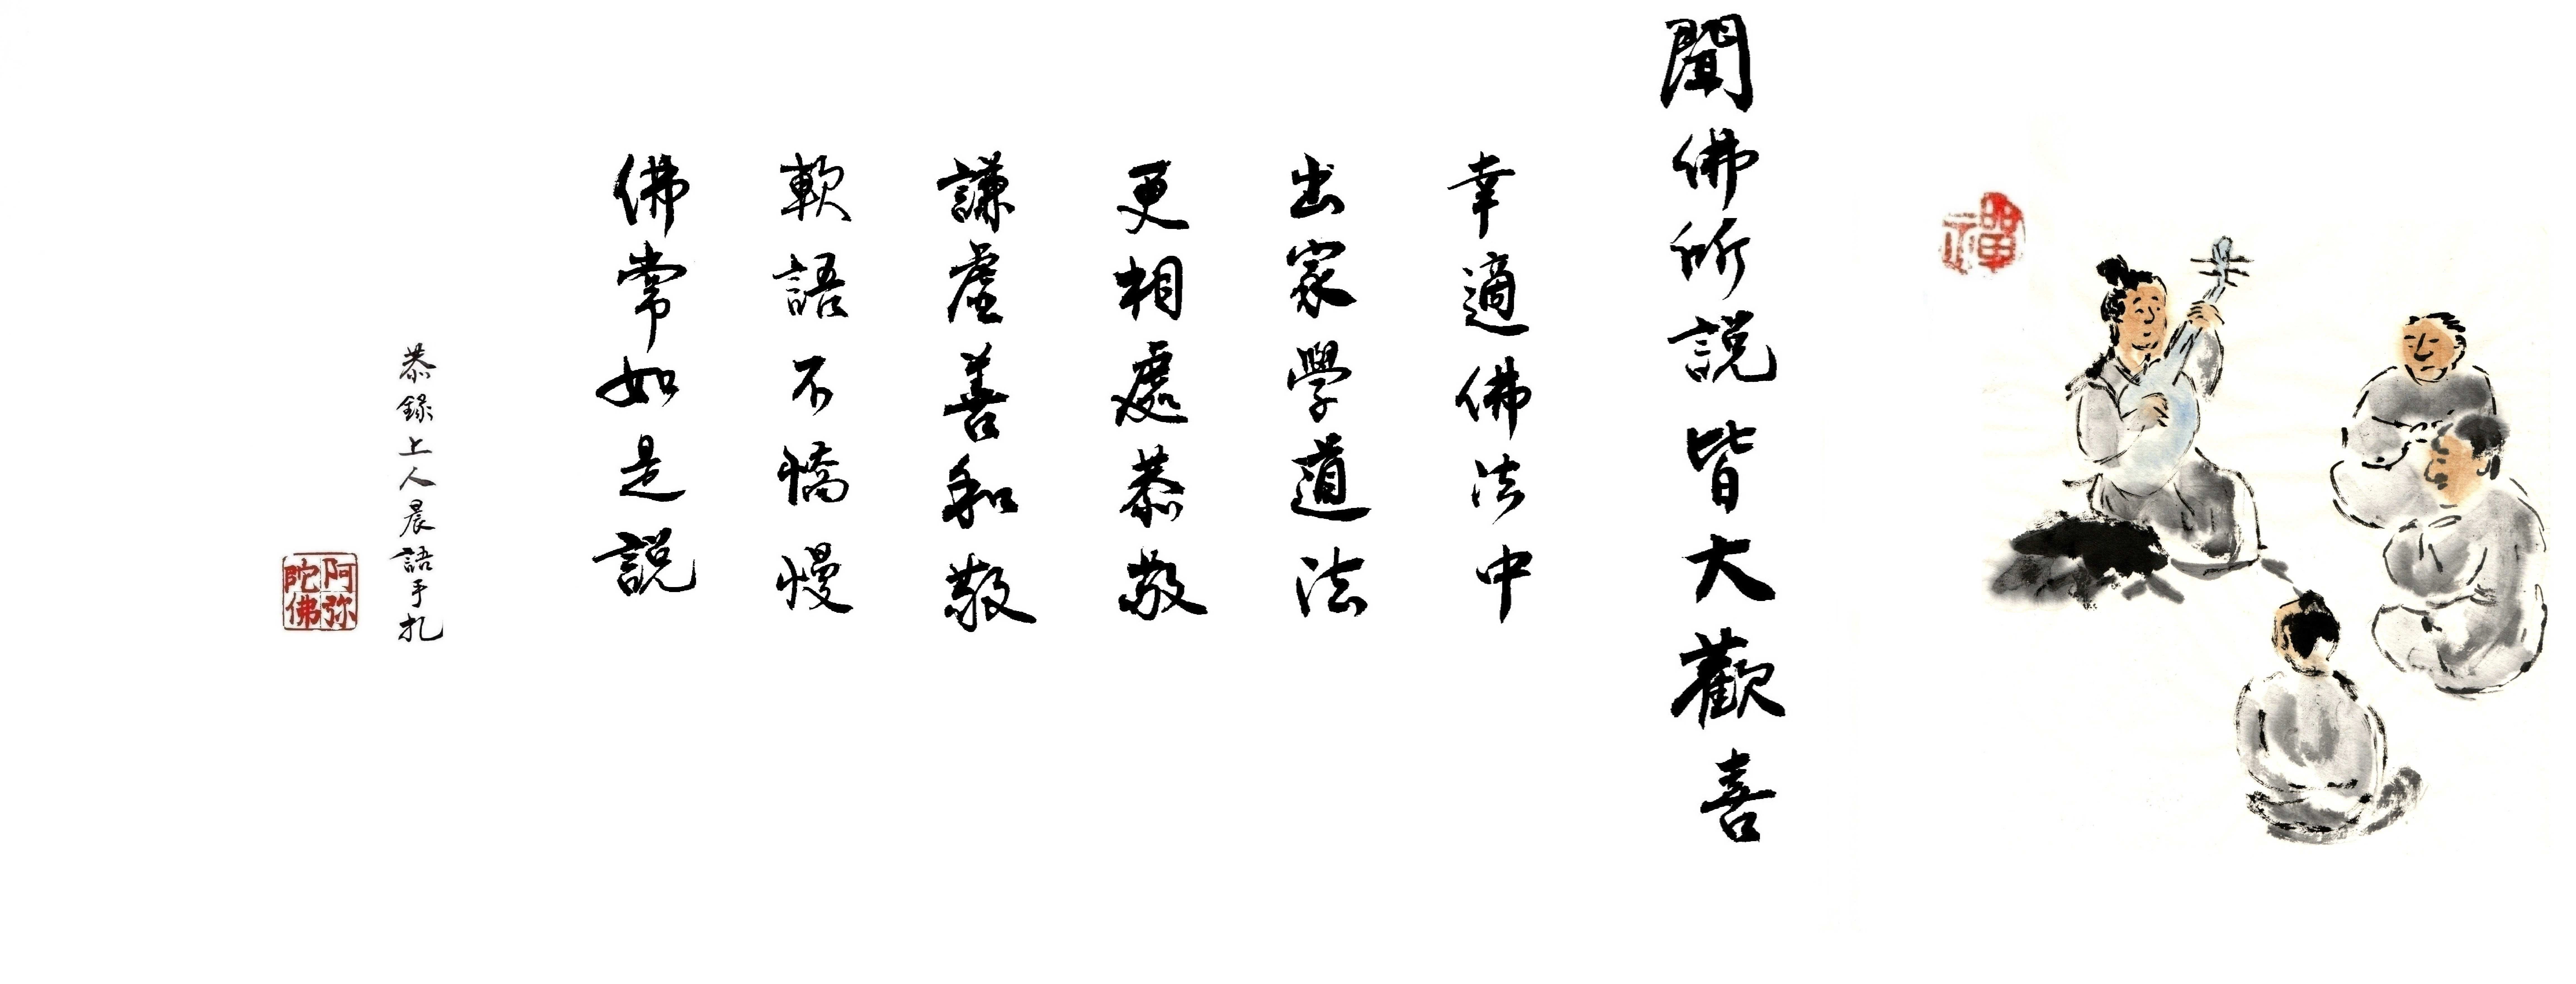 禪
聞佛所説皆大歡喜
幸適佛法中
出家學道法
更相處恭敬
謙虛善和敬
軟語不憍慢
佛常如是説
恭錄上人晨語手札
阿弥陀佛